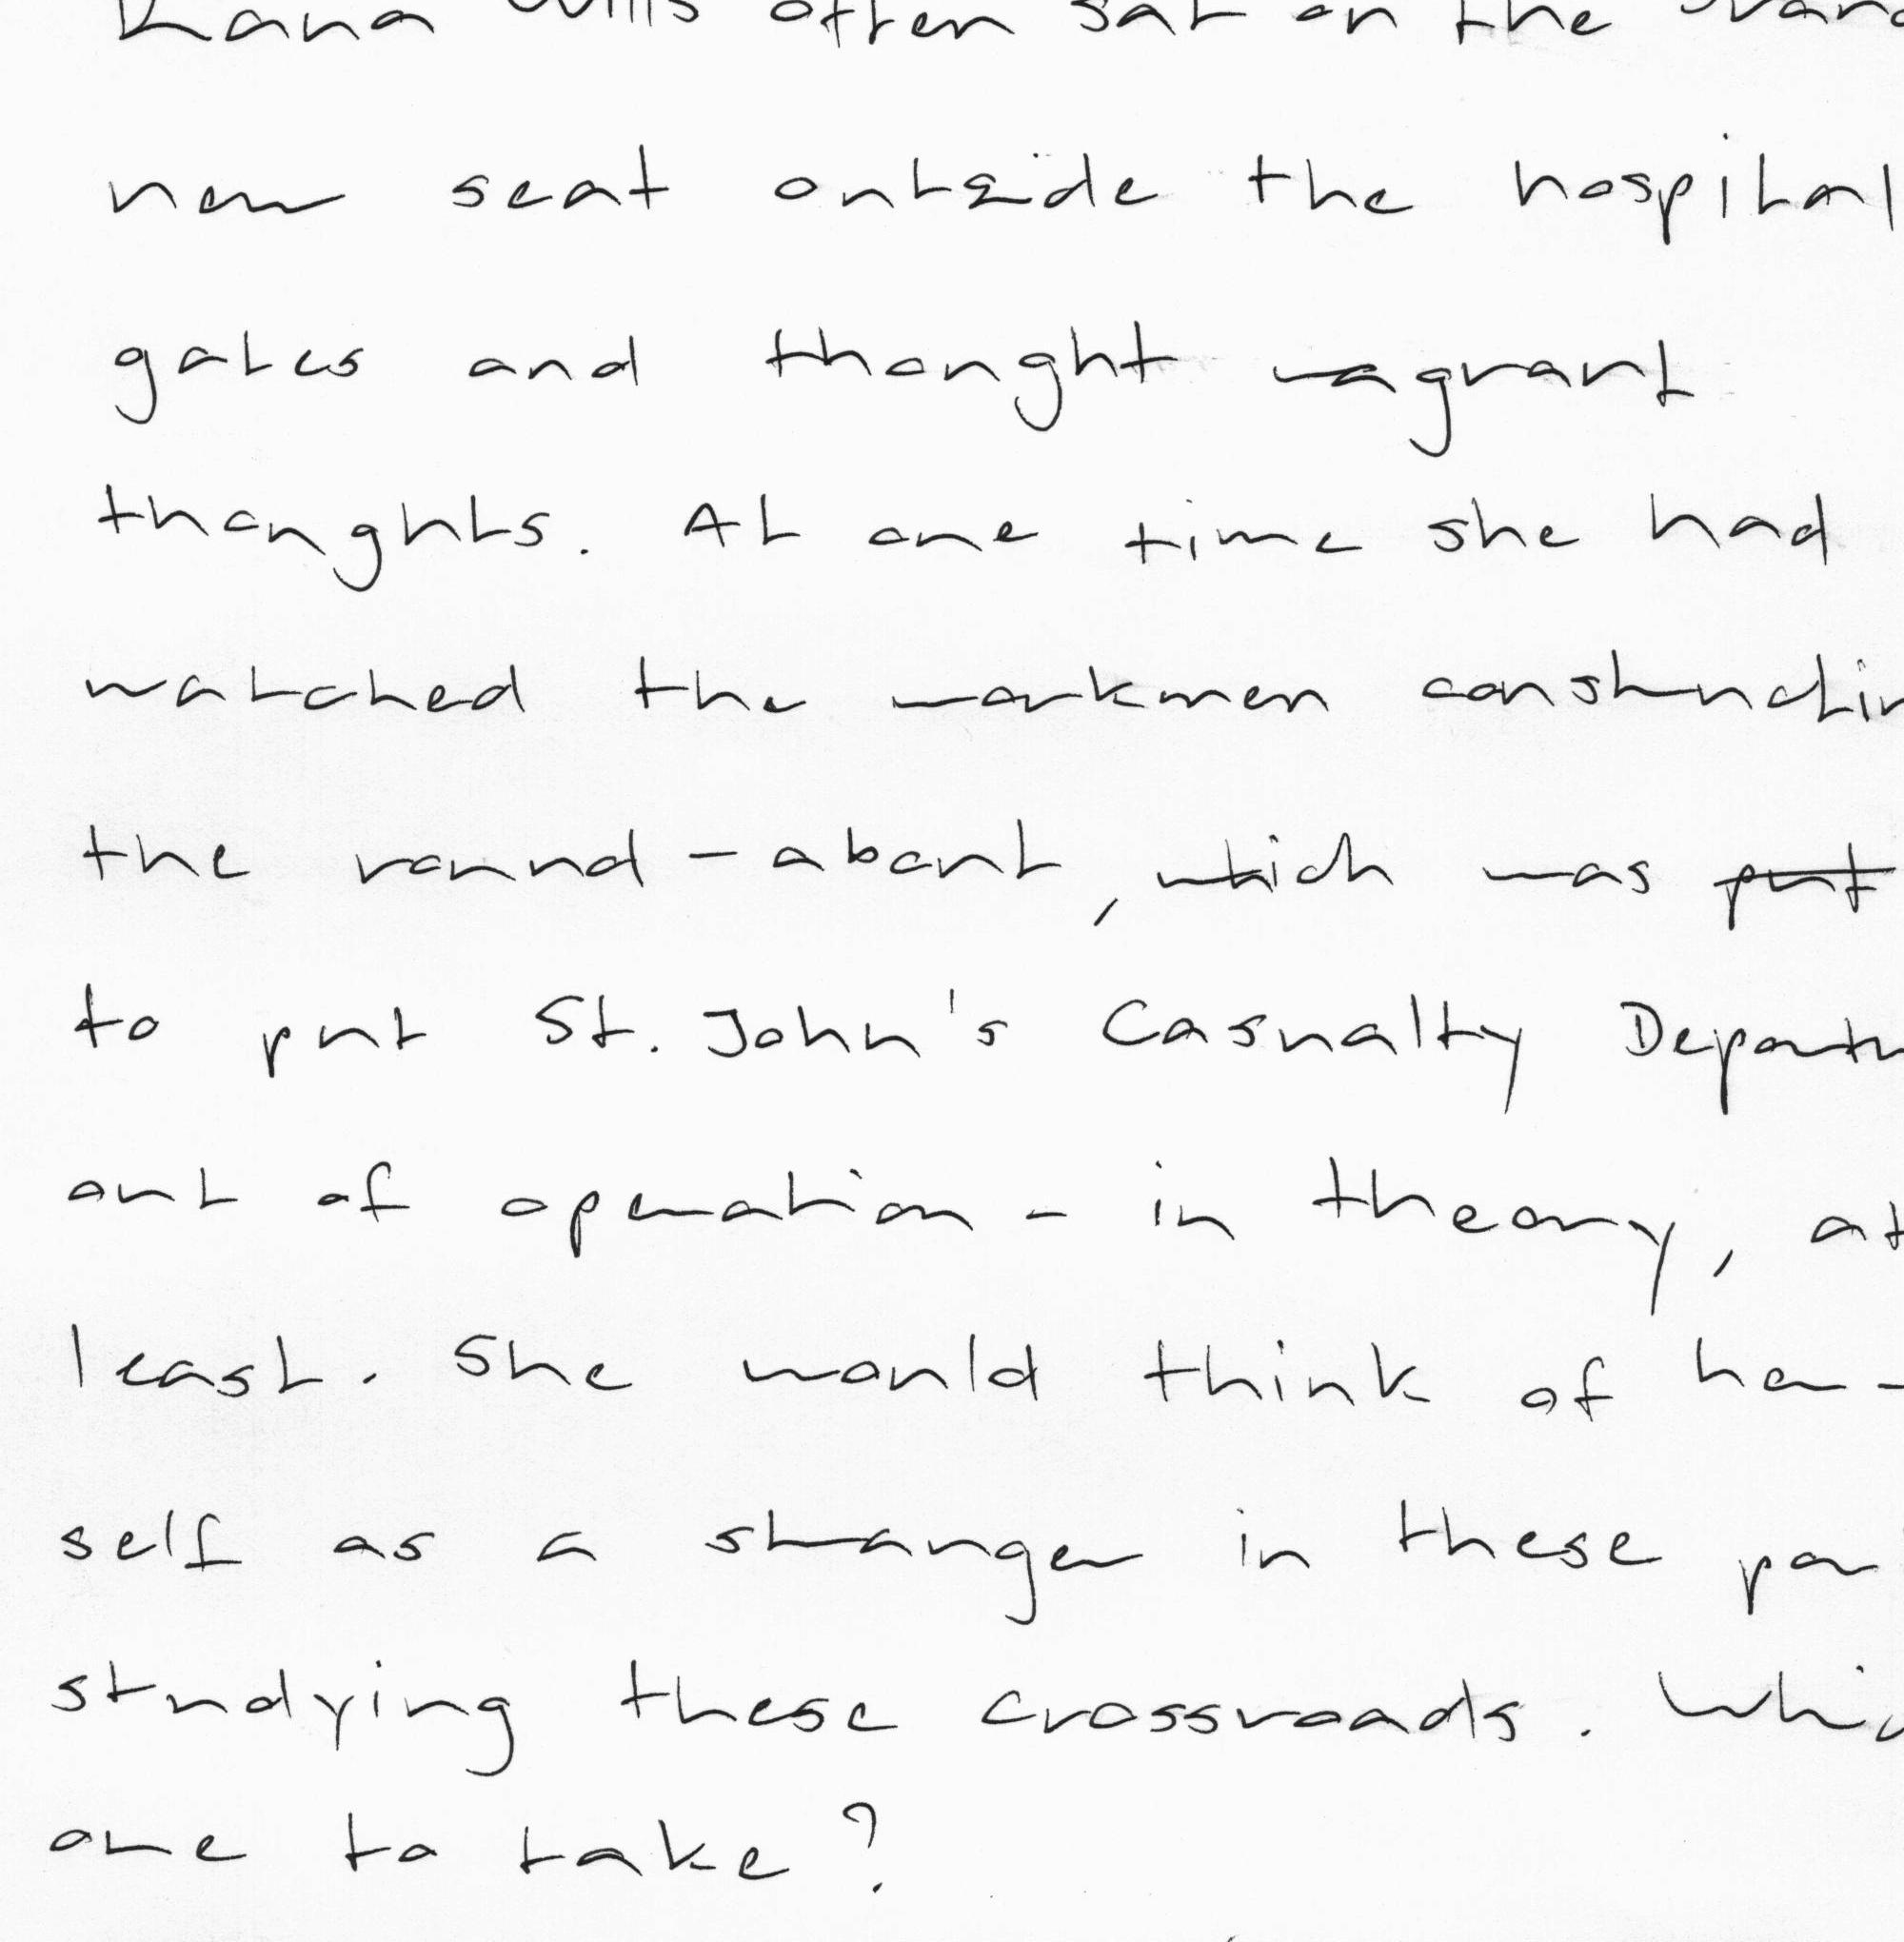 Lana Wills often sat on the
new seat outside the hospital
gates and thought vagrant
thoughts. At one time she had
watched the workmen constructin
the round-about, which was put
to put St. John's Casualty Departm
out of operation - in theory, at
least. She would think of her-
self as a stranger in these par
studying these crossroads. Whic
one to take?